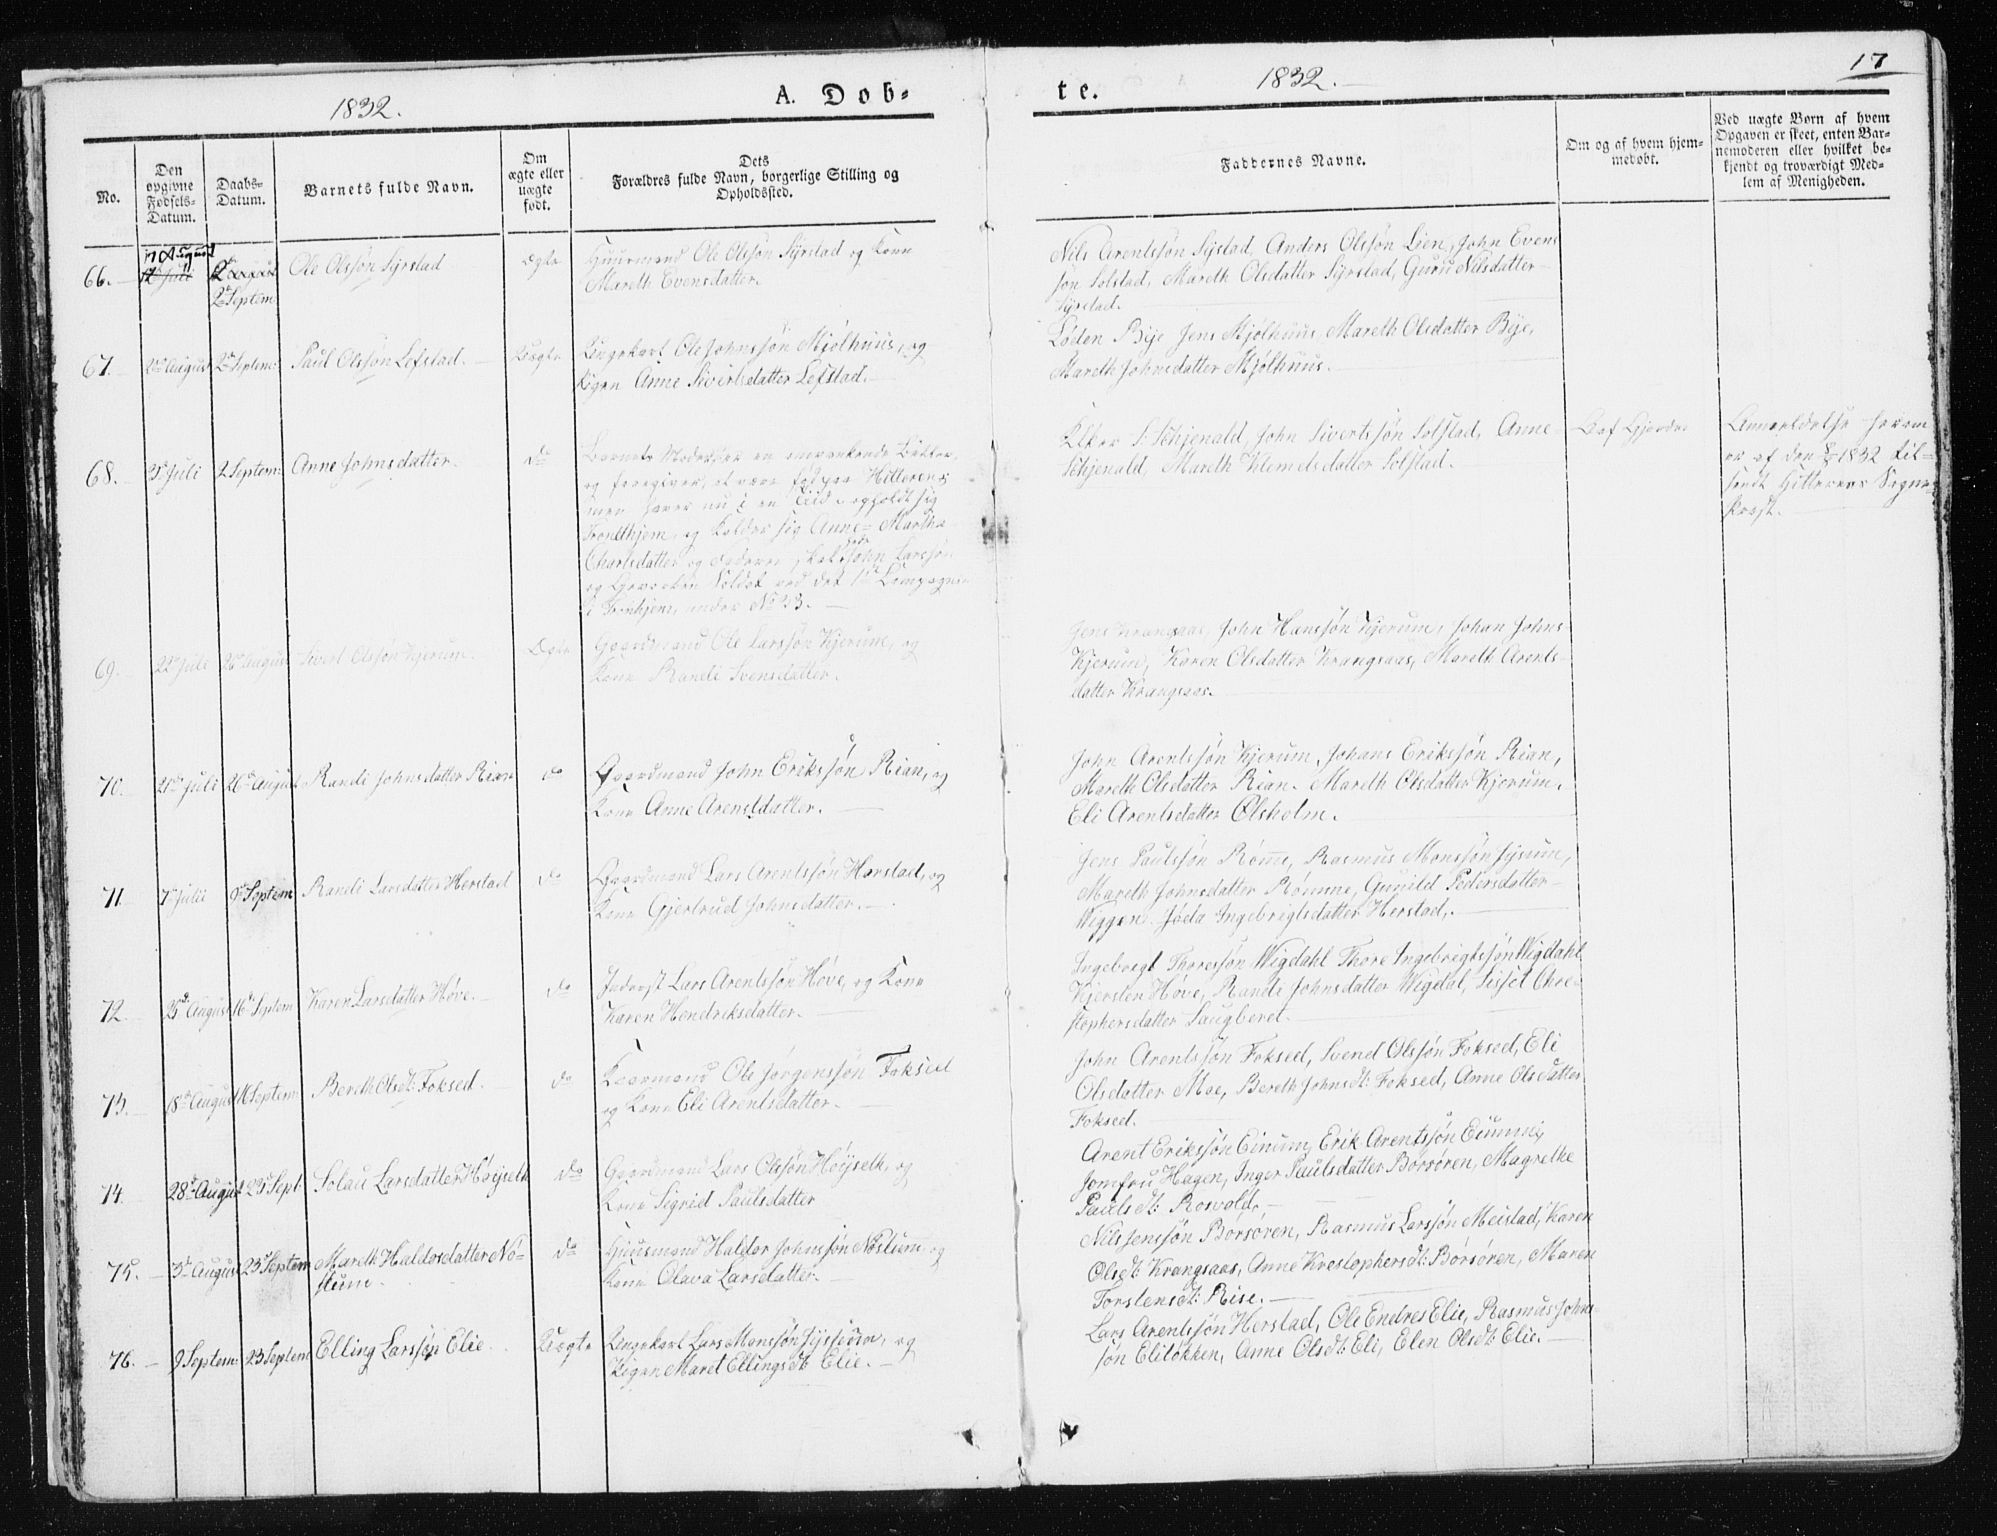 1832.
A. Dob-
te.
1832.
17
No.
Den opgivne Fødsels-Datum.
Daabs-Datum.
Barnets fulde Navn.
Om ægte eller uægte født.
Dets Forældres fulde Navn, borgerlige Stilling og Opholdssted.
Faddernes Navne.
Om og af hvem hjem-
medøbt.
Ved uægte Børn af hvem
Opgaven er skeet, enten Bar-
nemoderen eller hvilket be-
kjendt og troværdigt Med-
lem af Menigheden.
66. 2de Septem Ole Olssøn Syrstad Ægte Huusmand Ole Olssøn Syrstad og Kone
Mareth Evensdatter.
Nils Arentssøn Syrstad, Anders Olssøn Lien, John Evens
søn Solstad, Mareth Olsdatter Syrstad, Guru Nilsdatter
Syrstad.
67. August 2de Septem: Paul Olssøn Lefstad. Uægte Ungekarl Ole Johnssøn Mjølhuus, og
Pigen Anne Sivertsdatter Lefstad.
Løden Bye Jens Mjølhuus Mareth Olsdatter Bye,
Mareth Johnsdatter Mjølhuus.
68. 3de Juli 2 Septem: Anne Johnsdatter. do Barnets Moder er en omvankende
og foregiver, at være fød paa Hitteren,
men haver nu i en Tiid opholdt sig
Trondhjem, og kalder sig Anne Martha
Charlsdatter og Faderen skal John Larssøn
Soldat ved det 1ste Compagnie
i Tronhjem, under No 23.
S. Schjenald, John Sivertssøn Solstad, Anne
Schjenald, Mareth Klemedsdatter Solstad.
Anmeldelse herom
er af den 1832 til-
sendt Hitterens Sogne-
præst.
69. 22de Juli 26de August Sivert Olssøn Kjerum. Ægte Gaardmand Ole Larssøn Kjerum, og
Kone Randi Svensdatter.
Jens Krangsaas, John Hanssøn Kjerum, Johan Johns
Kjerum, Karen Olsdatter Krangsaas, Mareth Arents-
datter Krangsaas.
70. 21de Juli 26de August Randi Johnsdatter Rian do Gaardmand John Erikssøn Rian, og
Kone Anne Arensldatter.
John Arentssøn Kjerum, Johans Erikssøn Rian,
Mareth Olsdatter Rian. Mareth Olsdatter Kjerum.
Eli Arentsdatter Ølsholm.
71. 7de Julii 9de Septem Randi Larsdatter Herstad do Gaardmand Lars Arentssøn Harstad, og
Kone Gjertrud Johnsdatter.
Jens Paulssøn Rømme, Rasmus Monssøn Sysum,
Mareth Johnsdatter Rømme, Gunild Pedersdatter
Wiggen. Joda Ingebrigtsdatter Herstad,.
72. 25de August 16de Septem Karen Larsdatter Høve. do Inderst Lars Arentssøn Høve, og Kone
Karen Hendriksdatter.
Ingebregt Thoressøn Wigdahl Thore Ingebrigtssøn Wigdahl
Kjersten Høve, Randi Johnsdatter Wigdal, Sissel Chre-
stophersdatter Saugberet.
73. 18de August 16 Septem: Bereth Olsdt: Foksed. do Gaarmand Ole Jørgenssøn Foksed
og Kone Eli Arentsdatter.
John Arentssøn Foksed, Svend Olssøn Foksed, Eli
Olsdatter Moe, Bereth Johnsdt: Foksed, Anne Olsdatter
Foksed.
74. 28de August 23de Sept Solau Larsdatter Høyseth do Gaardmand Lars Olssøn Høyseth, og
Kone Sigrid Paulsdatter
Arent Erikssøn Einum, Erik Arentssøn Eumm,
Jomfru Hagen, Inger Paulsdatter Børsøren, Magrethe
Paulsdt: Rosvold.
75. 3de August 23 Septem Mareth Haldosdatter Nø-
stum. do Huusmand Haldor Johnssøn Nøstum og
Kone Olava Larsdatter.
Nils Jenssøn Børsøren, Rasmus Larssøn Meistad, Karen
Olsdt: Krangsaas, Anne Krestophersdt: Børsøren, Maren
Torstensdt: Rise.
76. 9 Septem: 23 Septem Elling Larssøn Elie. Uægte Ungekarl Lars Monssøn, og
Pigen Maret Ellingsdt: Elie.
Lars Arentssøn Herstad, Ole Endres Elie, Rasmus Johns-
søn Eliløkken, Anne Olsdt: Eli, Elen Olsdt: Elie.